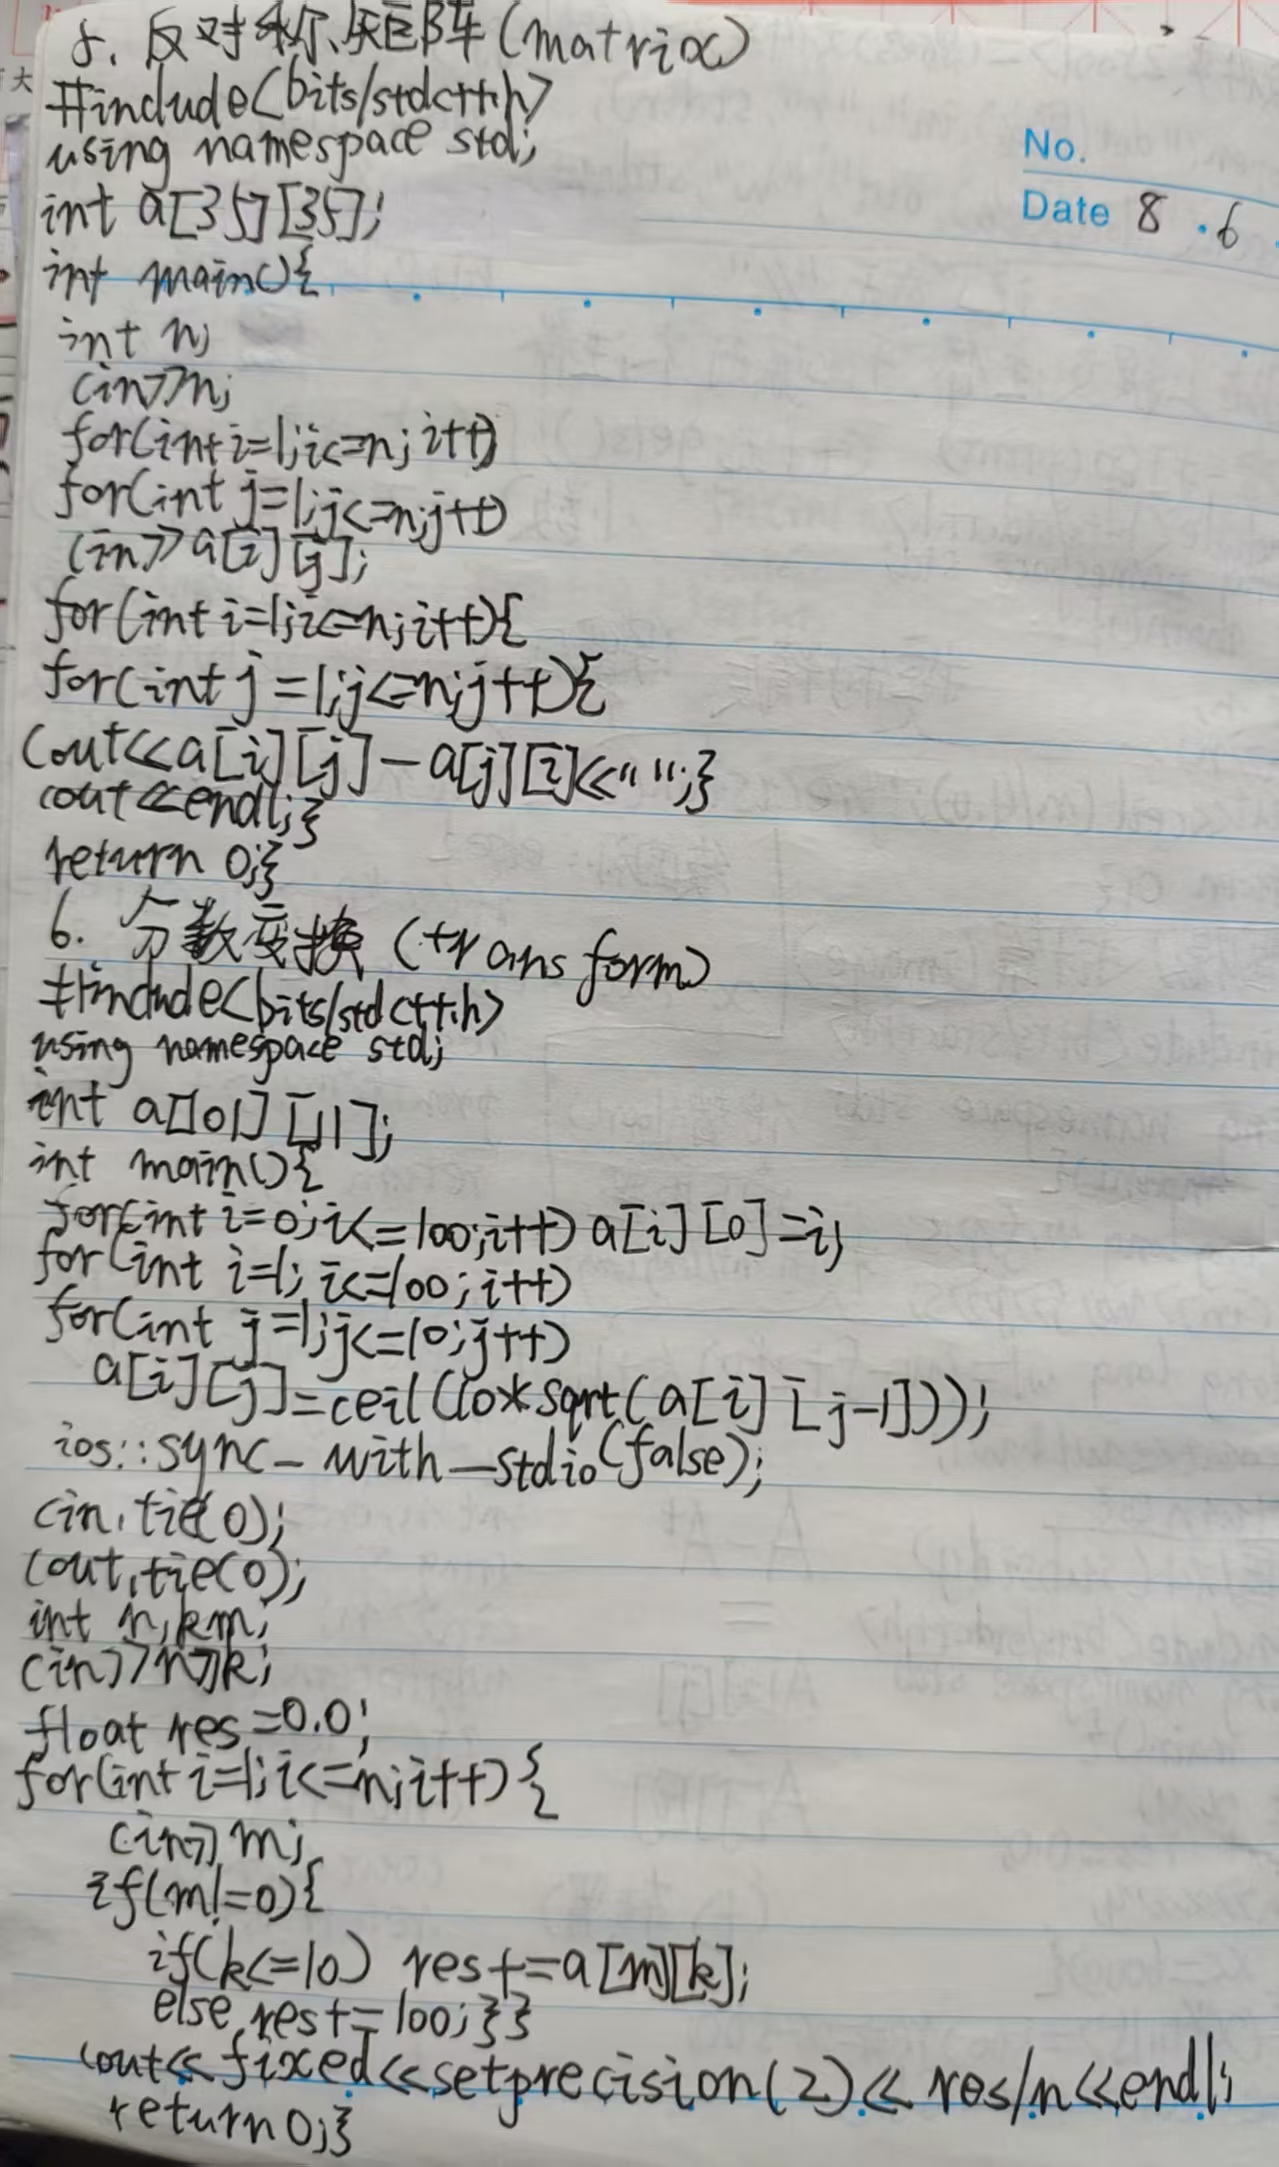 5. 反对称矩阵(matrix)
#include<bits/stdc++.h>
using namespace std;
No.
int a[35][35];
Date 8.6
int main(){
int n;
cin>>n;
for(int i=1;i<=n;i++)
for(int j=1;j<=n;j++)
cin>>a[i][j];
for(int i=1;i<=n;i++){
for(int j=1;j<=n;j++){
cout<<a[i][j]-a[j][i]<<" ";}
cout<<endl;}
return 0;}
6. 分数变换(transform)
#include<bits/stdc++.h>
using namespace std;
int a[101][11];
int main(){
for(int i=0;i<=100;i++) a[i][0]=i;
for(int i=1;i<=100;i++)
for(int j=1;j<=10;j++)
a[i][j]=ceil(10*sqrt(a[i][j-1]));
ios::sync_with_stdio(false);
cin.tie(0);
cout.tie(0);
int n,k,m;
cin>>n>>k;
float res=0.0;
for(int i=1;i<=n;i++){
cin>>m;
if(m!=0){
if(k<=10) res+=a[m][k];
else res+=100;}}
cout<<fixed<<setprecision(2)<<res/n<<endl;
return 0;}